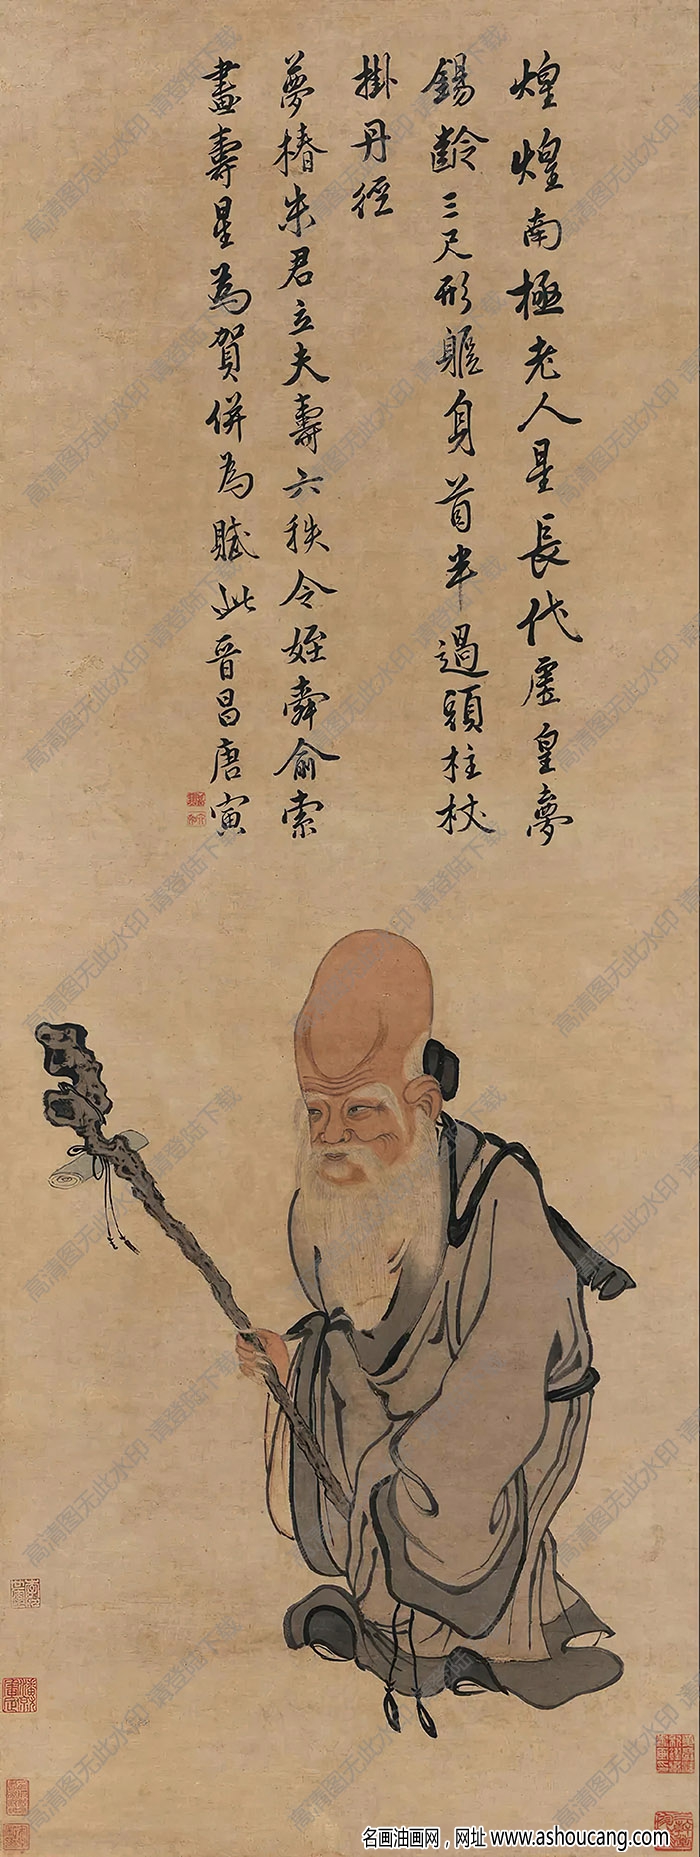 煌煌南極老人星長代虛皇夢
錫齡三尺形軀身首半過頭柱杖
掛丹經
夢椿朱君立夫壽六秩令姪舜俞索
畫壽星為賀併為賦此晉昌唐寅
高清图无此水印 请登陆下载
名画油画网，网址 www.ashoucang.com